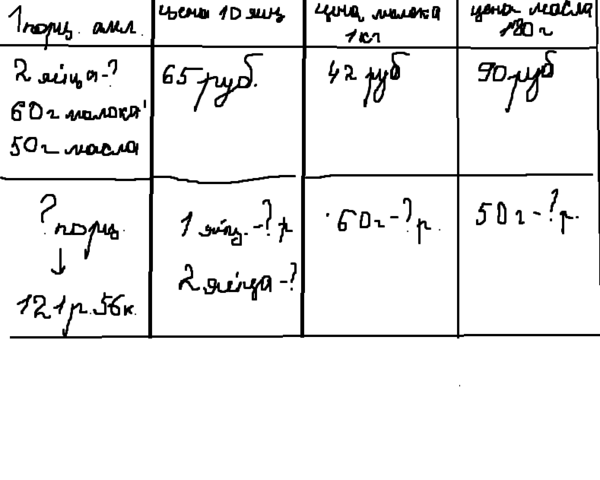 1 порц. омл.
цена 10 яиц
цена молока
1 кг
цена масла
180 г
2 яйца-?
60 г молока
50 г масла
65 руб.
42 руб
90 руб
? порц.
↓
121 р. 56 к.
1 яйц. -? р
2 яйца -?
60 г - ? р.
50 г - ? р.